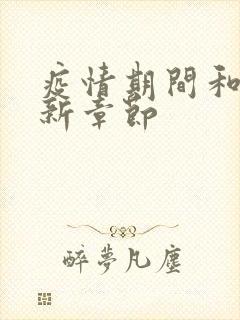 疫情期間和
新章節
醉夢凡塵